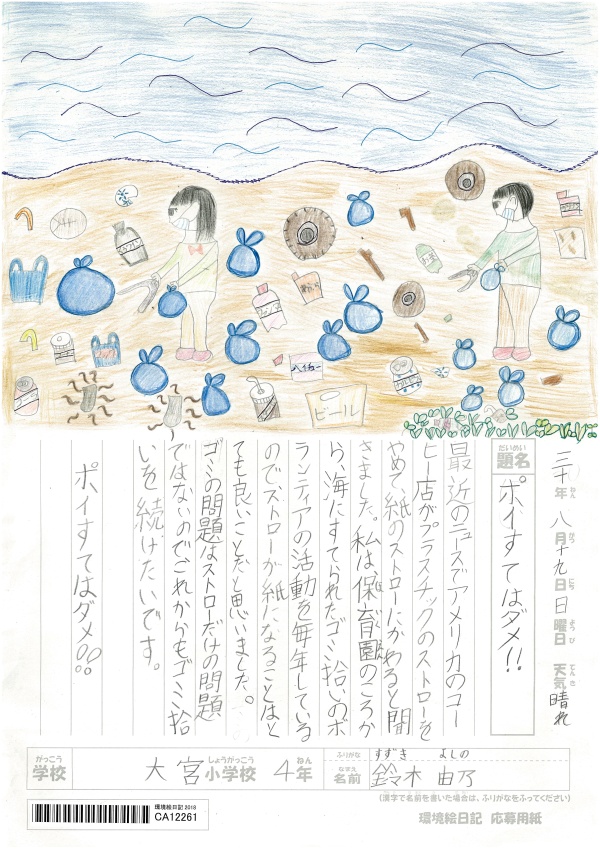 お茶
ビール
三十年ねん 八月がつ十九日にち 日曜日ようび 天気てんき 晴れ
だいめい
題名
ポイすてはダメ!!
最近のニュースでアメリカのコー
ヒー店がプラスチックのストローを
やめて紙のストローにかわると聞
きました。私は、保育園のころか
ら、海にすてられたゴミ拾いのボ
ランティアの活動を毎年している
ので、ストローが紙になることはと
ても良いことだと思いました。
ゴミの問題はストローだけの問題
ではないのでこれからもゴミ拾
いを続けたいです。
ポイすてはダメ!!
がっこう しょうがっこう ねん ふりがな すずき よしの
学校 大宮小学校 4年 なまえ 名前 鈴木 由乃
(漢字で名前を書いた場合は、ふりがなをふってください)
環境絵日記 2018
CA12261
環境絵日記 応募用紙